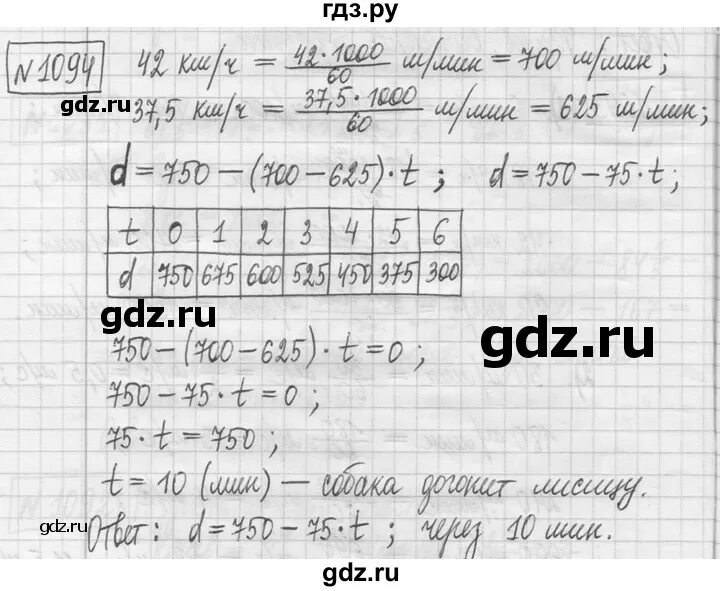 гдз.ру
№1094 42 км/ч = 42·1000/60 м/мин = 700 м/мин;
gdz.ru
37,5 км/ч = 37,5·1000/60 м/мин = 625 м/мин;
d = 750 − (700 − 625)·t; d = 750 − 75·t;
t 0 1 2 3 4 5 6
d 750 675 600 525 450 375 300
gdz.ru
gdz.ru
750 − (700 − 625)·t = 0;
750 − 75·t = 0;
75·t = 750;
t = 10 (мин) — собака догонит лисицу.
gdz.ru
Ответ: d = 750 − 75·t; через 10 мин.
gdz.ru